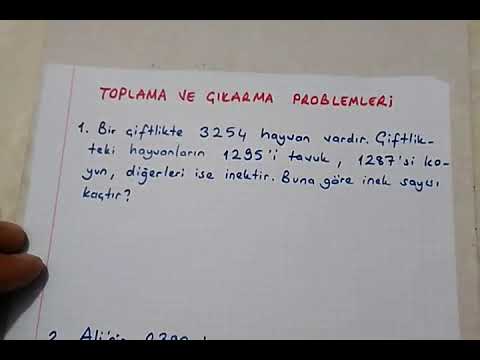 TOPLAMA VE ÇIKARMA PROBLEMLERİ
1. Bir çiftlikte 3254 hayvan vardır. Çiftlik-
teki hayvanların 1295'i tavuk, 1287'si ko-
yun, diğerleri ise inektir. Buna göre inek sayısı
kaçtır?
2. Ali'nin